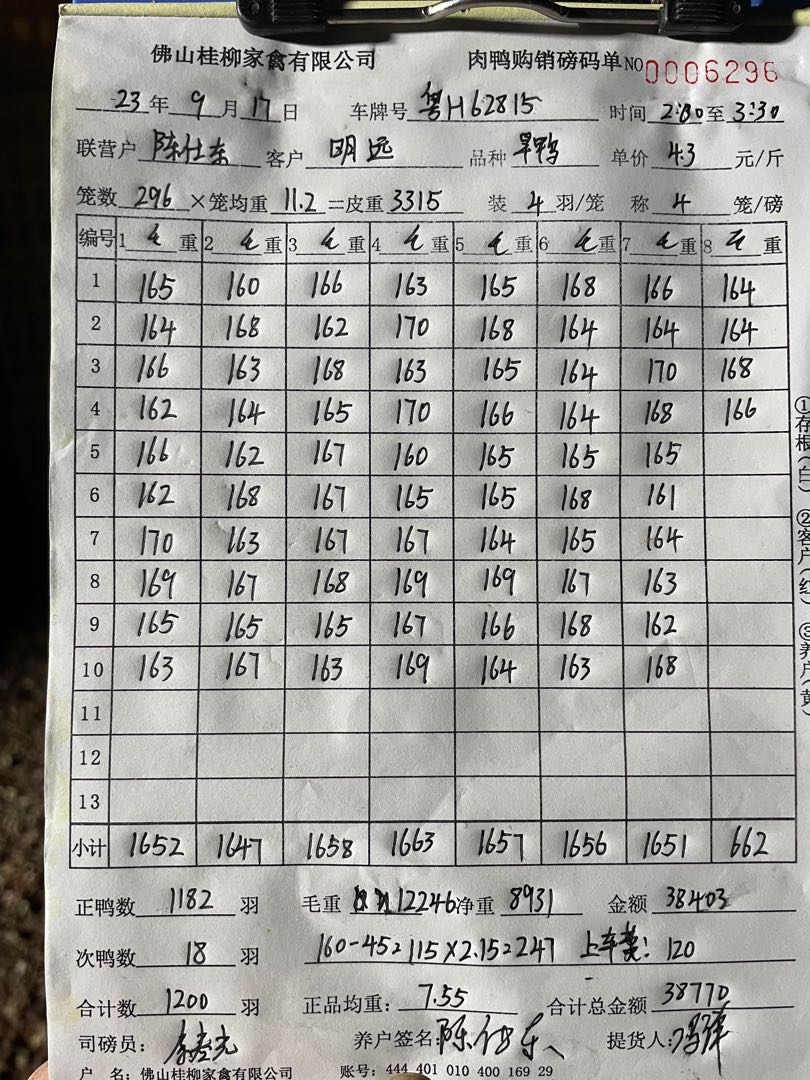 佛山桂柳家禽有限公司 肉鸭购销磅码单 NO 0006296
23年 9月 17日 车牌号 粤H62815 时间 2:30至 3:30
联营户 陈仕东 客户 明远 品种 旱鸭 单价 4.3 元/斤
笼数 296 ×笼均重 11.2 =皮重 3315 装 4 羽/笼 称 4 笼/磅
编号 1 毛重 2 毛重 3 毛重 4 毛重 5 毛重 6 毛重 7 毛重 8 毛重
1 165 160 166 163 165 168 166 164
2 164 168 162 170 168 164 164 164
3 166 163 168 163 165 164 170 168
4 162 164 165 170 166 164 168 166
5 166 162 167 160 165 165 165
6 162 168 167 165 165 168 161
7 170 163 167 167 164 165 164
8 169 167 168 169 169 167 163
9 165 165 165 167 166 168 162
10 163 167 163 169 164 163 168
11
12
13
小计 1652 1647 1658 1663 1657 1656 1651 662
正鸭数 1182 羽 毛重 12246 净重 8931 金额 38403
次鸭数 18 羽 160-45=115×2.15=247 上车费: 120
合计数 1200 羽 正品均重: 7.55 合计总金额 38770
司磅员: 养户签名: 陈仕东 提货人:
户 名: 佛山桂柳家禽有限公司 账号: 444 401 010 400 169 29
①存根(白) ②客户(红) ③养户(黄)